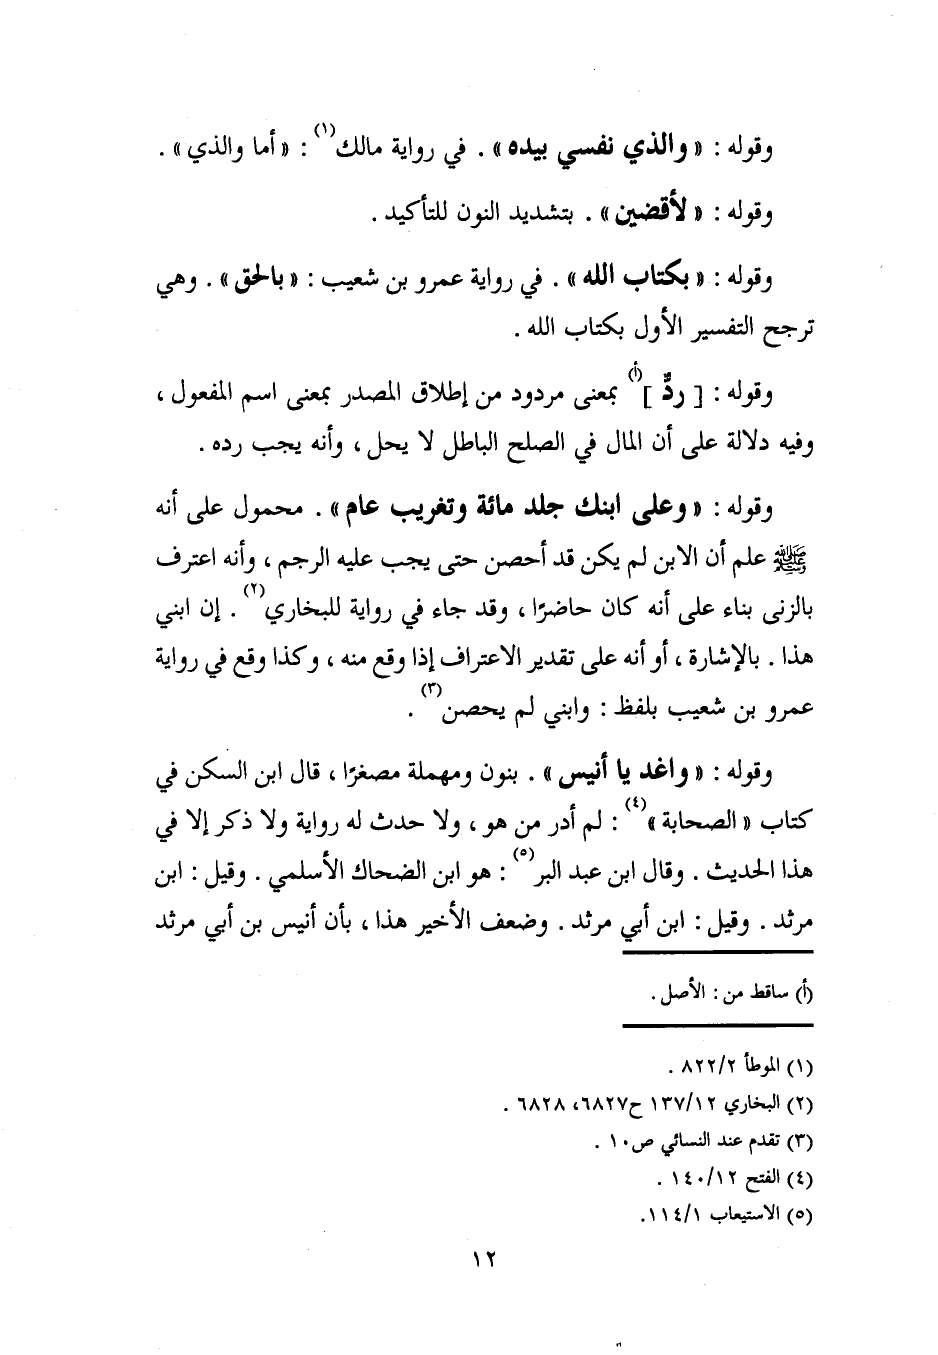 وقوله : « والذي نفسي بيده » . في رواية مالك(١) : « أما والذي » .
وقوله : « لأقضين » . بتشديد النون للتأكيد .
وقوله : « بكتاب الله » . في رواية عمرو بن شعيب : « بالحق » . وهي
ترجح التفسير الأول بكتاب الله .
وقوله : [ ردٌّ ](أ) بمعنى مردود من إطلاق المصدر بمعنى اسم المفعول ،
وفيه دلالة على أن المال في الصلح الباطل لا يحل ، وأنه يجب رده .
وقوله : « وعلى ابنك جلد مائة وتغريب عام » . محمول على أنه
ﷺ علم أن الابن لم يكن قد أحصن حتى يجب عليه الرجم ، وأنه اعترف
بالزنى بناء على أنه كان حاضرًا ، وقد جاء في رواية للبخاري(٢) . إن ابني
هذا . بالإشارة ، أو أنه على تقدير الاعتراف إذا وقع منه ، وكذا وقع في رواية
عمرو بن شعيب بلفظ : وابني لم يحصن(٣) .
وقوله : « واغد يا أنيس » . بنون ومهملة مصغرًا ، قال ابن السكن في
كتاب « الصحابة »(٤) : لم أدر من هو ، ولا حدث له رواية ولا ذكر إلا في
هذا الحديث . وقال ابن عبد البر(٥) : هو ابن الضحاك الأسلمي . وقيل : ابن
مرثد . وقيل : ابن أبي مرثد . وضعف الأخير هذا ، بأن أنيس بن أبي مرثد
(أ) ساقط من : الأصل .
(١) الموطأ ٨٢٢/٢ .
(٢) البخاري ١٣٧/١٢ ح٦٨٢٧، ٦٨٢٨ .
(٣) تقدم عند النسائي ص١٠ .
(٤) الفتح ١٤٠/١٢ .
(٥) الاستيعاب ١١٤/١.
١٢